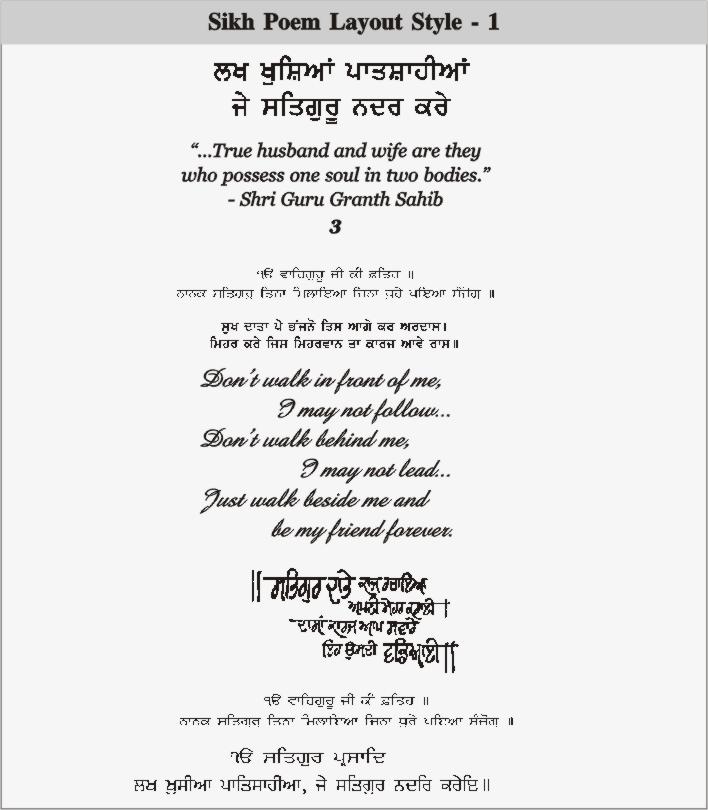 Sikh Poem Layout Style - 1
ਲਖ ਖੁਸ਼ਿਆਂ ਪਾਤਸ਼ਾਹੀਆਂ
ਜੇ ਸਤਿਗੁਰੂ ਨਦਰ ਕਰੇ
“...True husband and wife are they
who possess one soul in two bodies.”
- Shri Guru Granth Sahib
3
ੴ ਵਾਹਿਗੁਰੂ ਜੀ ਕੀ ਫ਼ਤਿਹ ॥
ਨਾਨਕ ਸਤਿਗੁਰੁ ਤਿਨਾ ਮਿਲਾਇਆ ਜਿਨਾ ਧੁਰੇ ਪਇਆ ਸੰਜੋਗੁ ॥
ਸੁਖ ਦਾਤਾ ਪੇ ਭੰਜਨੋ ਤਿਸ ਆਗੇ ਕਰ ਅਰਦਾਸ।
ਮਿਹਰ ਕਰੇ ਜਿਸ ਮਿਹਰਵਾਨ ਤਾ ਕਾਰਜ ਆਵੇ ਰਾਸ॥
Don't walk in front of me,
I may not follow...
Don't walk behind me,
I may not lead...
Just walk beside me and
be my friend forever.
॥ ਸਤਿਗੁਰ ਦਾਤੇ ਕਾਜੁ ਰਚਾਇਆ
ਅਪਣੀ ਮੇਹਰ ਕਰਾਈ।
ਦਾਸਾਂ ਕਾਰਜ ਆਪ ਸਵਾਰੇ
ਇਹ ਉਸਦੀ ਵਡਿਆਈ॥
ੴ ਵਾਹਿਗੁਰੂ ਜੀ ਕੀ ਫ਼ਤਿਹ ॥
ਨਾਨਕ ਸਤਿਗੁਰੁ ਤਿਨਾ ਮਿਲਾਇਆ ਜਿਨਾ ਧੁਰੇ ਪਇਆ ਸੰਜੋਗੁ ॥
ੴ ਸਤਿਗੁਰ ਪ੍ਰਸਾਦਿ
ਲਖ ਖੁਸੀਆ ਪਾਤਿਸਾਹੀਆ, ਜੇ ਸਤਿਗੁਰ ਨਦਰਿ ਕਰੇਇ॥